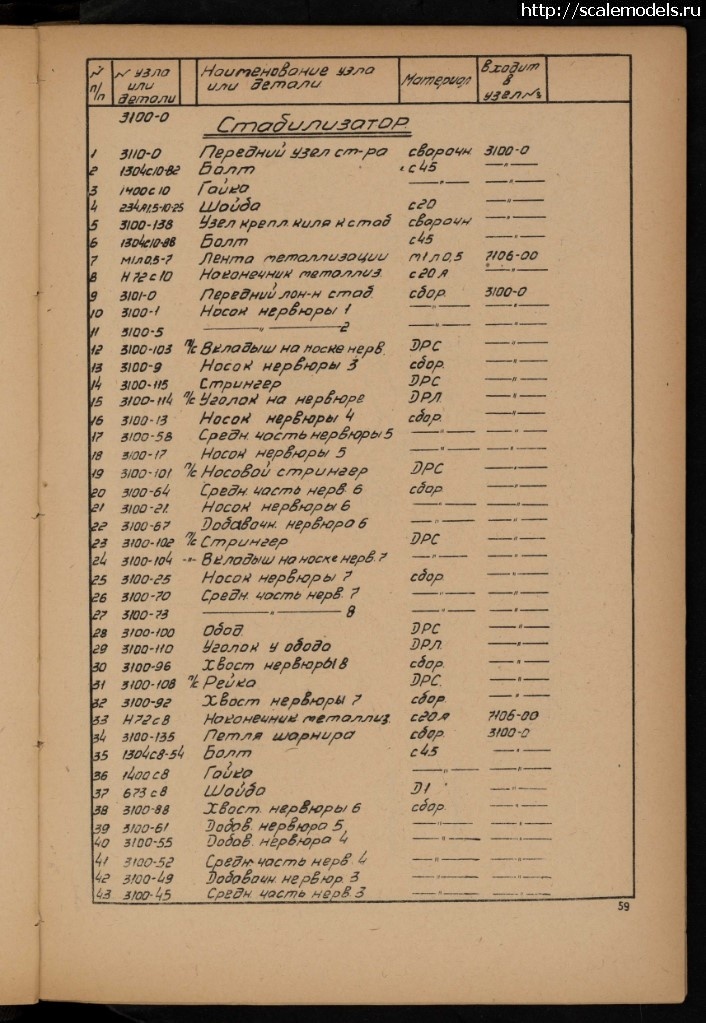 http://scalemodels.ru
№ п/п № узла или детали Наименование узла или детали Материал Входит в узел №
3100-0 Стабилизатор
1 3110-0 Передний узел ст-ра сварочн 3100-0
2 1304с10-82 Болт с45 —"—
3 1400с10 Гайка —"— —"—
4 234А1,5-10-25 Шайба с20 —"—
5 3100-138 Узел крепл. киля к стаб сварочн —"—
6 1304с10-88 Болт с45 —"—
7 М1Л0,5-7 Лента металлизации м1л0,5 7106-00
8 Н72с10 Наконечник металлиз. с20А —"—
9 3101-0 Передний лон-н стаб. сбор. 3100-0
10 3100-1 Носок нервюры 1 —"— —"—
11 3100-5 —"— 2 —"— —"—
12 3100-103 п/с Вкладыш на носке нерв. DРС —"—
13 3100-9 Носок нервюры 3 сбор. —"—
14 3100-115 Стрингер DРС —"—
15 3100-114 п/с Уголок на нервюре DРЛ —"—
16 3100-13 Носок нервюры 4 сбор. —"—
17 3100-58 Средн. часть нервюры 5 —"— —"—
18 3100-17 Носок нервюры 5 —"— —"—
19 3100-101 п/с Носовой стрингер DРС —"—
20 3100-64 Средн. часть нерв. 6 сбор —"—
21 3100-21 Носок нервюры 6 —"— —"—
22 3100-67 Добавочн. нервюра 6 —"— —"—
23 3100-102 п/с Стрингер DРС —"—
24 3100-104 -"- Вкладыш на носке нерв. 7 —"— —"—
25 3100-25 Носок нервюры 7 сбор. —"—
26 3100-70 Средн. часть нерв. 7 —"— —"—
27 3100-73 —"— 8 —"— —"—
28 3100-100 Обод DРС —"—
29 3100-110 Уголок у обода DРЛ —"—
30 3100-96 Хвост нервюры 8 сбор. —"—
31 3100-108 п/с Рейка DРС. —"—
32 3100-92 Хвост нервюры 7 сбор. —"—
33 Н72с8 Наконечник металлиз. с20А 7106-00
34 3100-135 Петля шарнира сбор. 3100-0
35 1304с8-54 Болт с45 —"—
36 1400с8 Гайка —"— —"—
37 673с8 Шайба D1 —"—
38 3100-88 Хвост. нервюры 6 сбор. —"—
39 3100-61 Добав. нервюра 5 —"— —"—
40 3100-55 Добав. нервюра 4 —"— —"—
41 3100-52 Средн. часть нерв. 4 —"— —"—
42 3100-49 Добавочн. нервюр. 3 —"— —"—
43 3100-45 Средн часть нерв. 3 —"— —"—
59